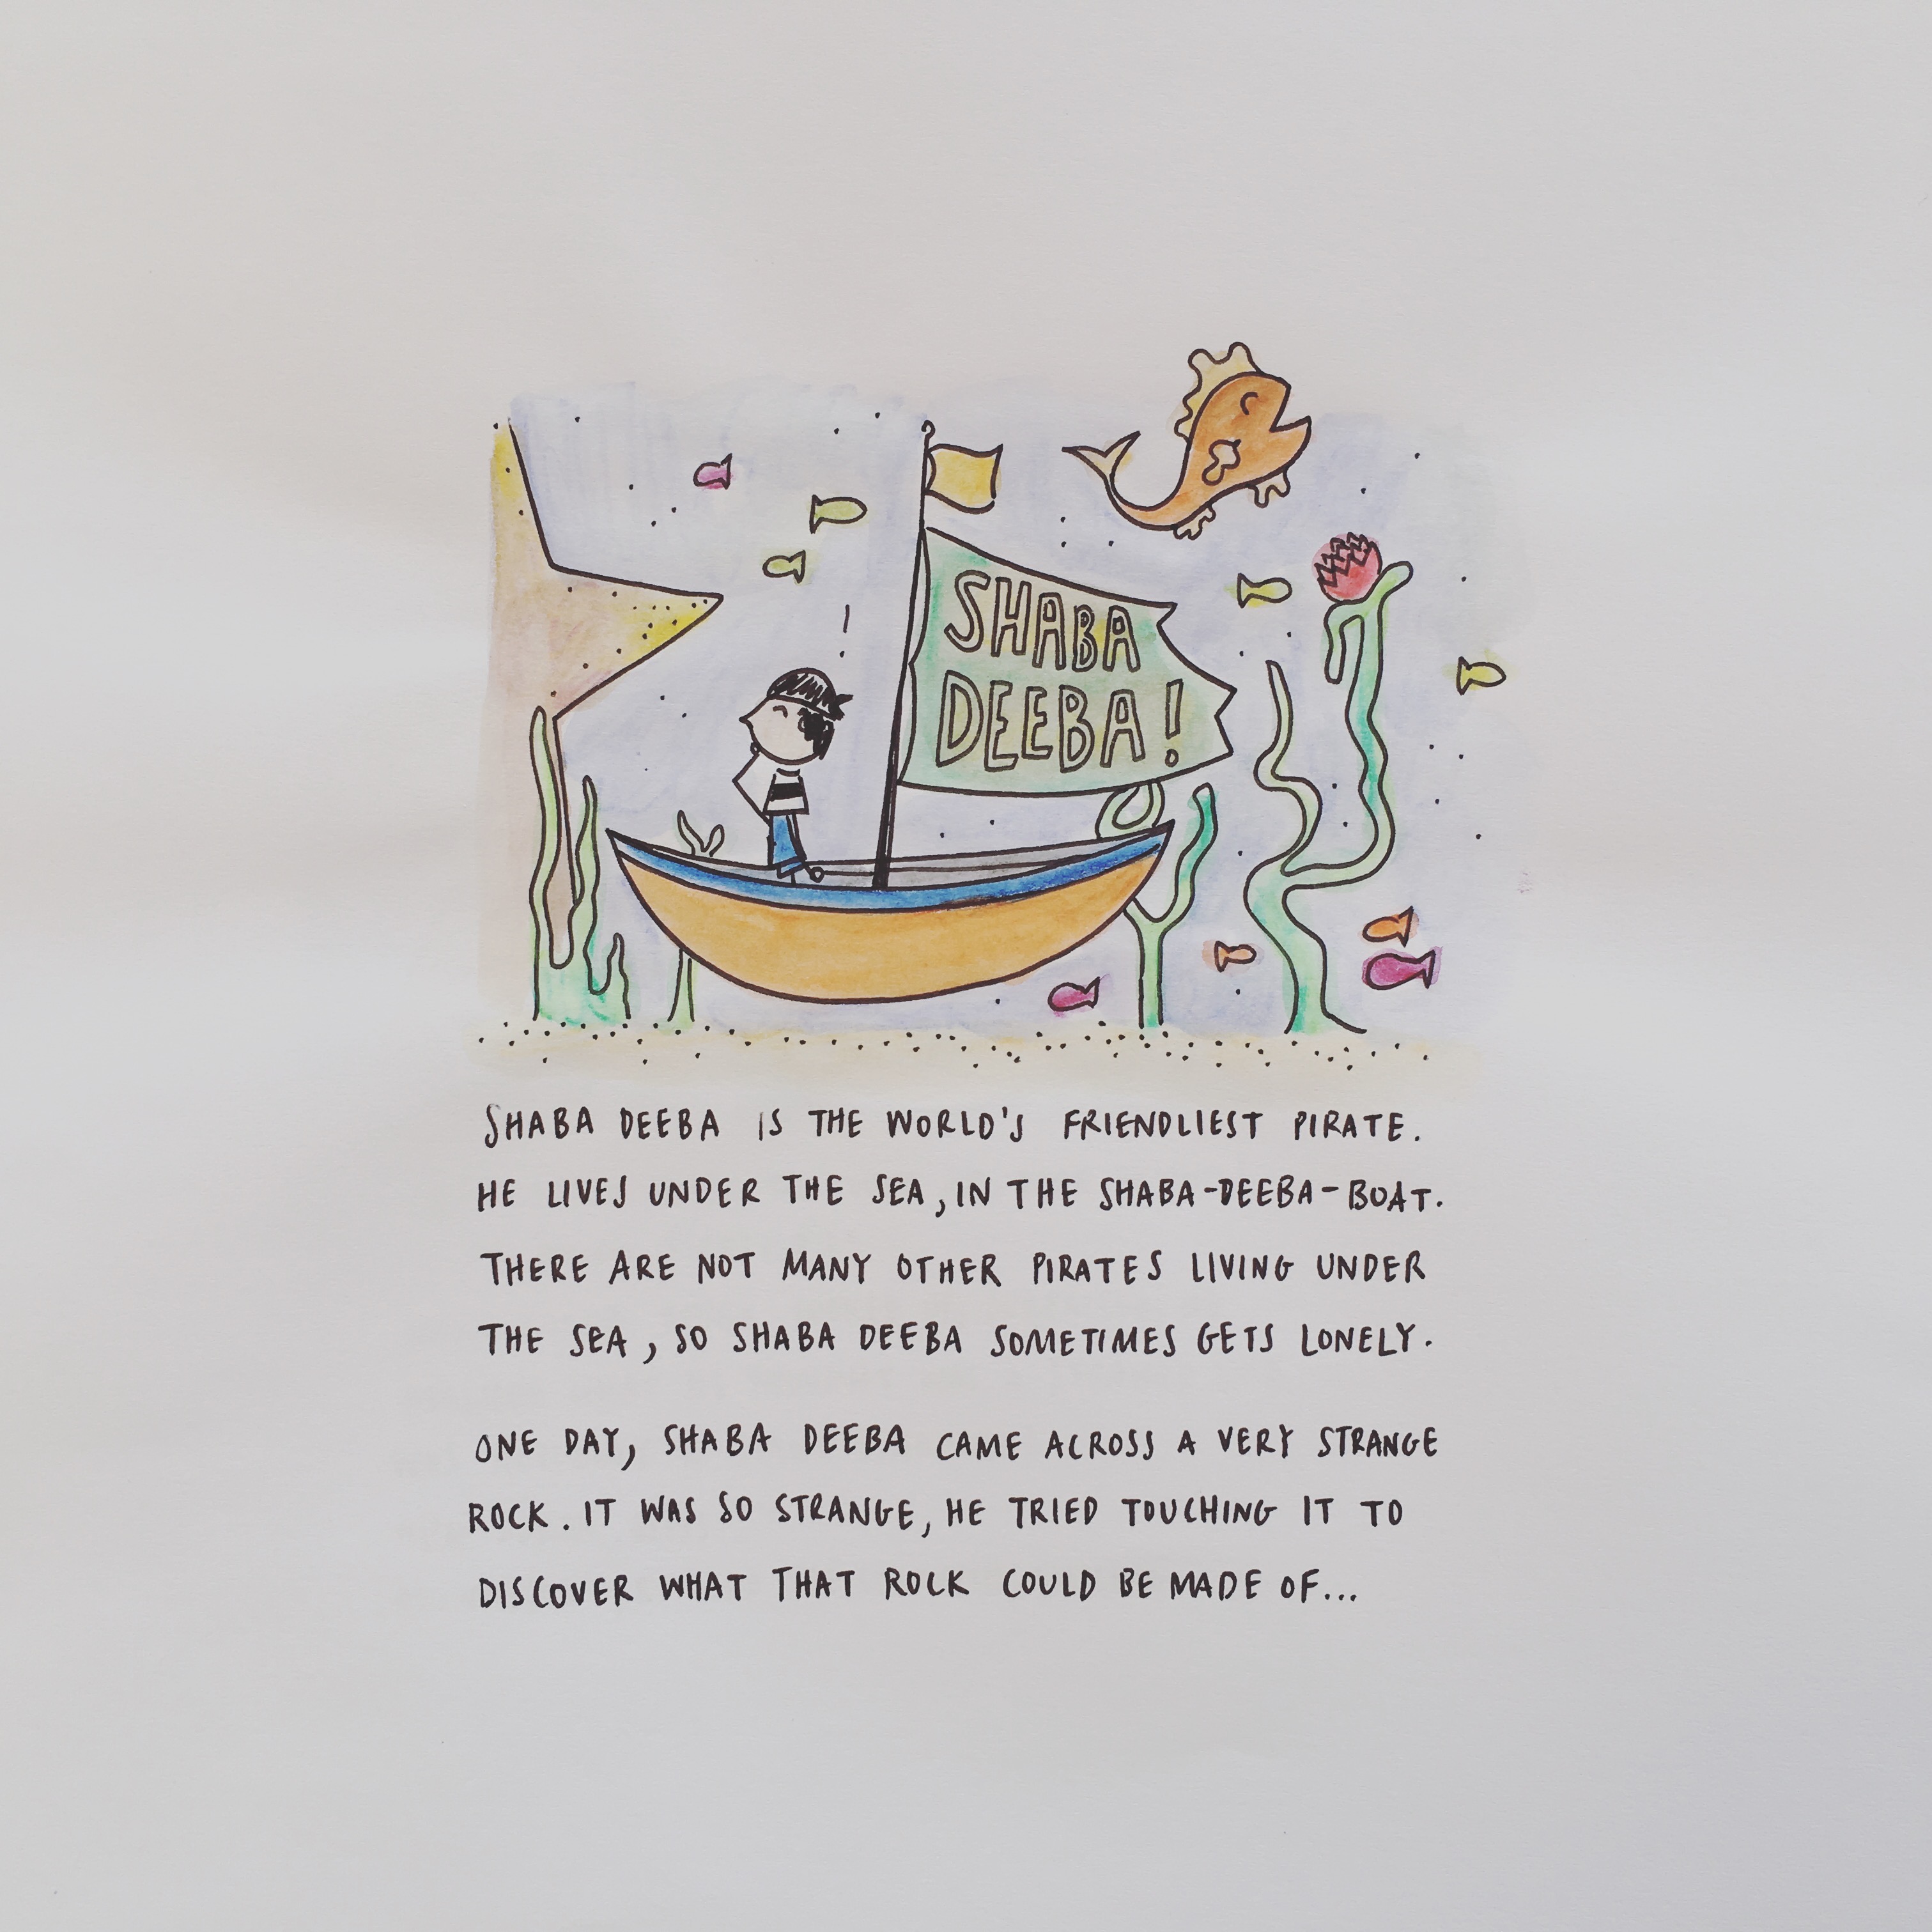 SHABA
DEEBA!
SHABA DEEBA IS THE WORLD'S FRIENDLIEST PIRATE.
HE LIVES UNDER THE SEA, IN THE SHABA-DEEBA-BOAT.
THERE ARE NOT MANY OTHER PIRATES LIVING UNDER
THE SEA, SO SHABA DEEBA SOMETIMES GETS LONELY.
ONE DAY, SHABA DEEBA CAME ACROSS A VERY STRANGE
ROCK. IT WAS SO STRANGE, HE TRIED TOUCHING IT TO
DISCOVER WHAT THAT ROCK COULD BE MADE OF...